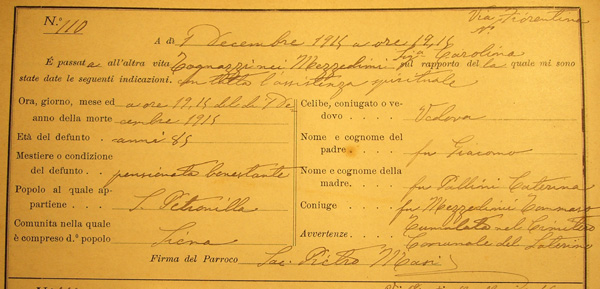 Via Fiorentina
N.° 110
N°
A dì 1 Decembre 1915 a ore 19,15
È passata all'altra vita Tognazzi nei Mezzedimi Carolina sul rapporto del la quale mi sono
state date le seguenti indicazioni. con tutta l'assistenza spirituale
Ora, giorno, mese ed a ore 19.15 del dì 1 De-
anno della morte cembre 1915
Età del defunto . anni 85
Mestiere o condizione
del defunto . . pensionata benestante
Popolo al quale ap-
partiene . . . S. Petronilla
Comunita nella quale
è compreso d.° popolo Siena
Celibe, coniugato o ve-
dovo . . . . Vedova
Nome e cognome del
padre . . . . fu Giacomo
Nome e cognome della
madre. . . . fu Pallini Caterina
Coniuge fu Mezzedimi Tommaso
Avvertenze. . . Tumulata nel Cimitero
Comunale del Laterino
Firma del Parroco Sac. Pietro Masi